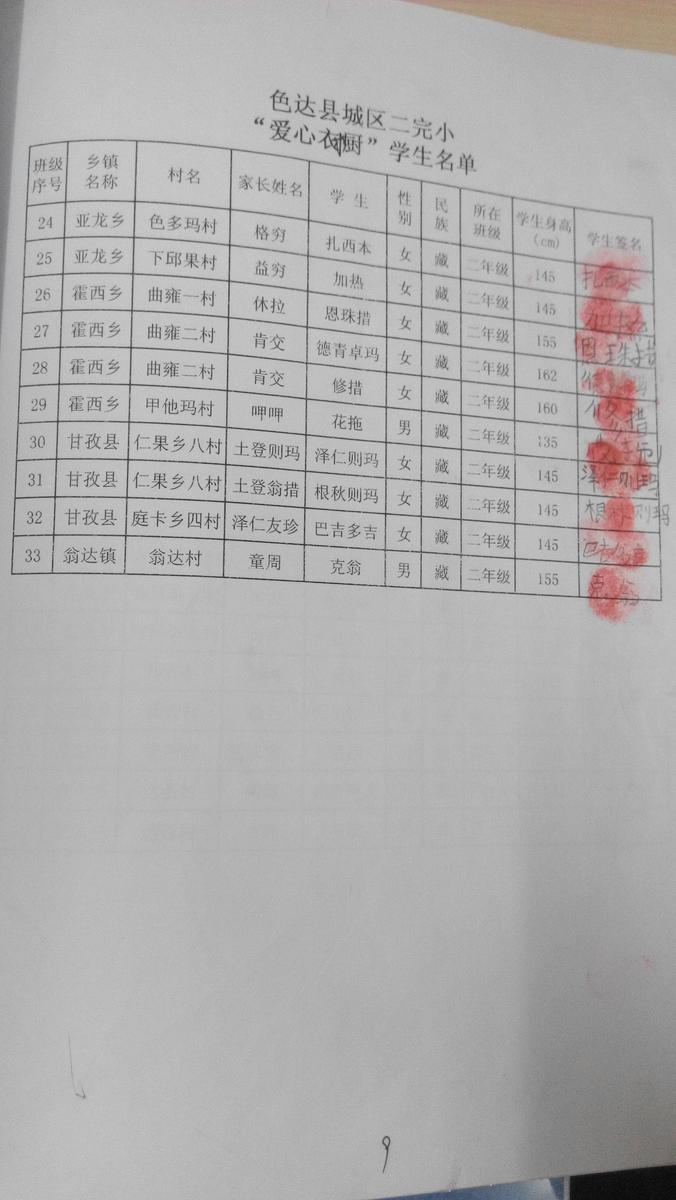 色达县城区二完小
“爱心衣厨”学生名单
班级序号 乡镇名称 村名 家长姓名 学生 性别 民族 所在班级 学生身高(cm) 学生签名
24 亚龙乡 色多玛村 格穷 扎西本 女 藏 二年级 145 扎西本
25 亚龙乡 下邱果村 益穷 加热 女 藏 二年级 145
26 霍西乡 曲雍一村 休拉 恩珠措 女 藏 二年级 155 恩珠措
27 霍西乡 曲雍二村 肯交 德青卓玛 女 藏 二年级 162
28 霍西乡 曲雍二村 肯交 修措 女 藏 二年级 160 修措
29 霍西乡 甲他玛村 呷呷 花拖 男 藏 二年级 135
30 甘孜县 仁果乡八村 土登则玛 泽仁则玛 女 藏 二年级 145 泽仁则玛
31 甘孜县 仁果乡八村 土登翁措 根秋则玛 女 藏 二年级 145 根秋则玛
32 甘孜县 庭卡乡四村 泽仁友珍 巴吉多吉 女 藏 二年级 145
33 翁达镇 翁达村 童周 克翁 男 藏 二年级 155 克翁
9